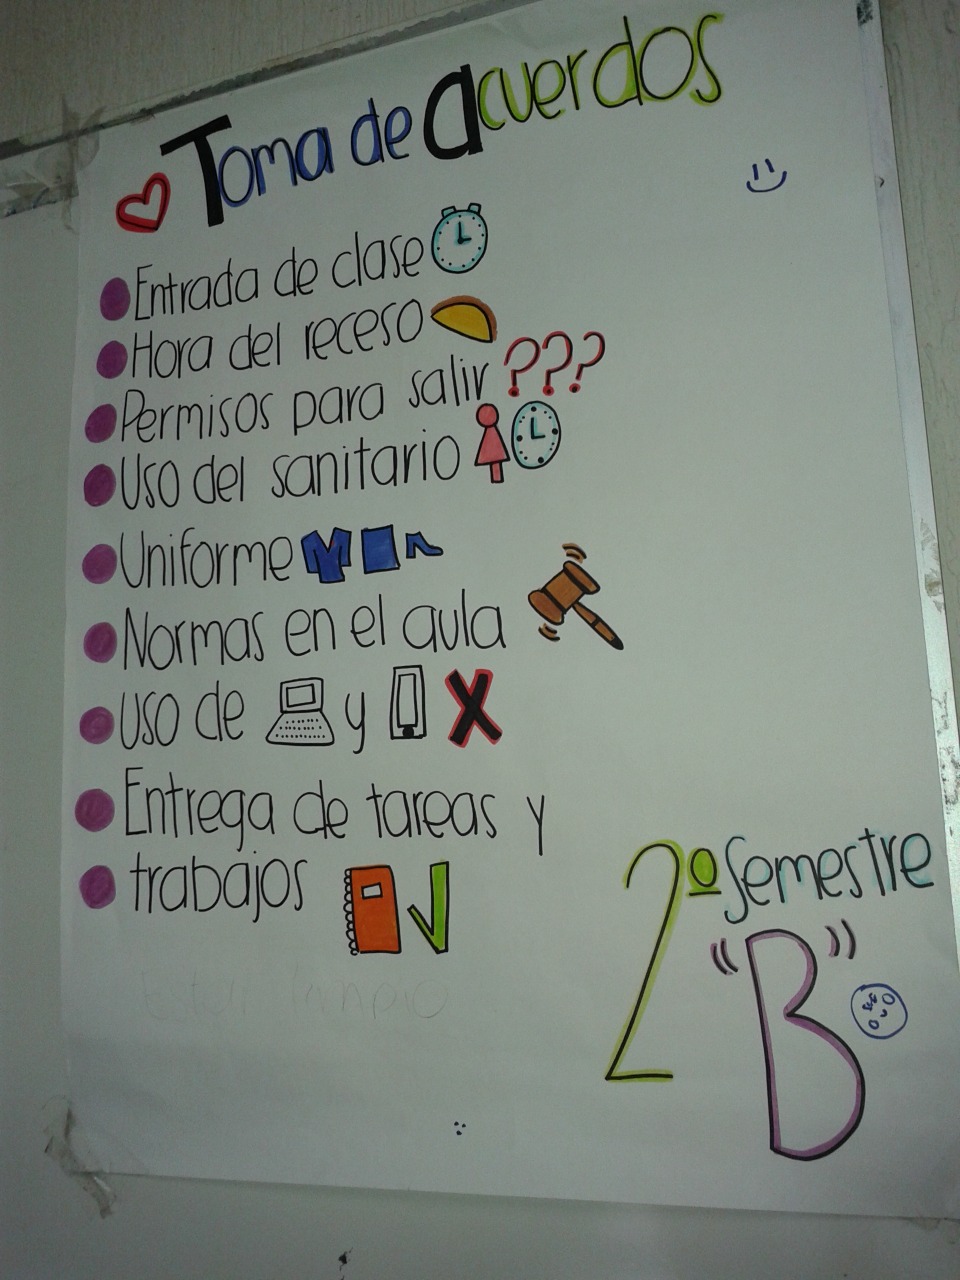 Toma de acuerdos
Entrada de clase
Hora del receso
Permisos para salir ???
Uso del sanitario
Uniforme
Normas en el aula
uso de y X
Entrega de tareas y
trabajos
2º semestre
"B"